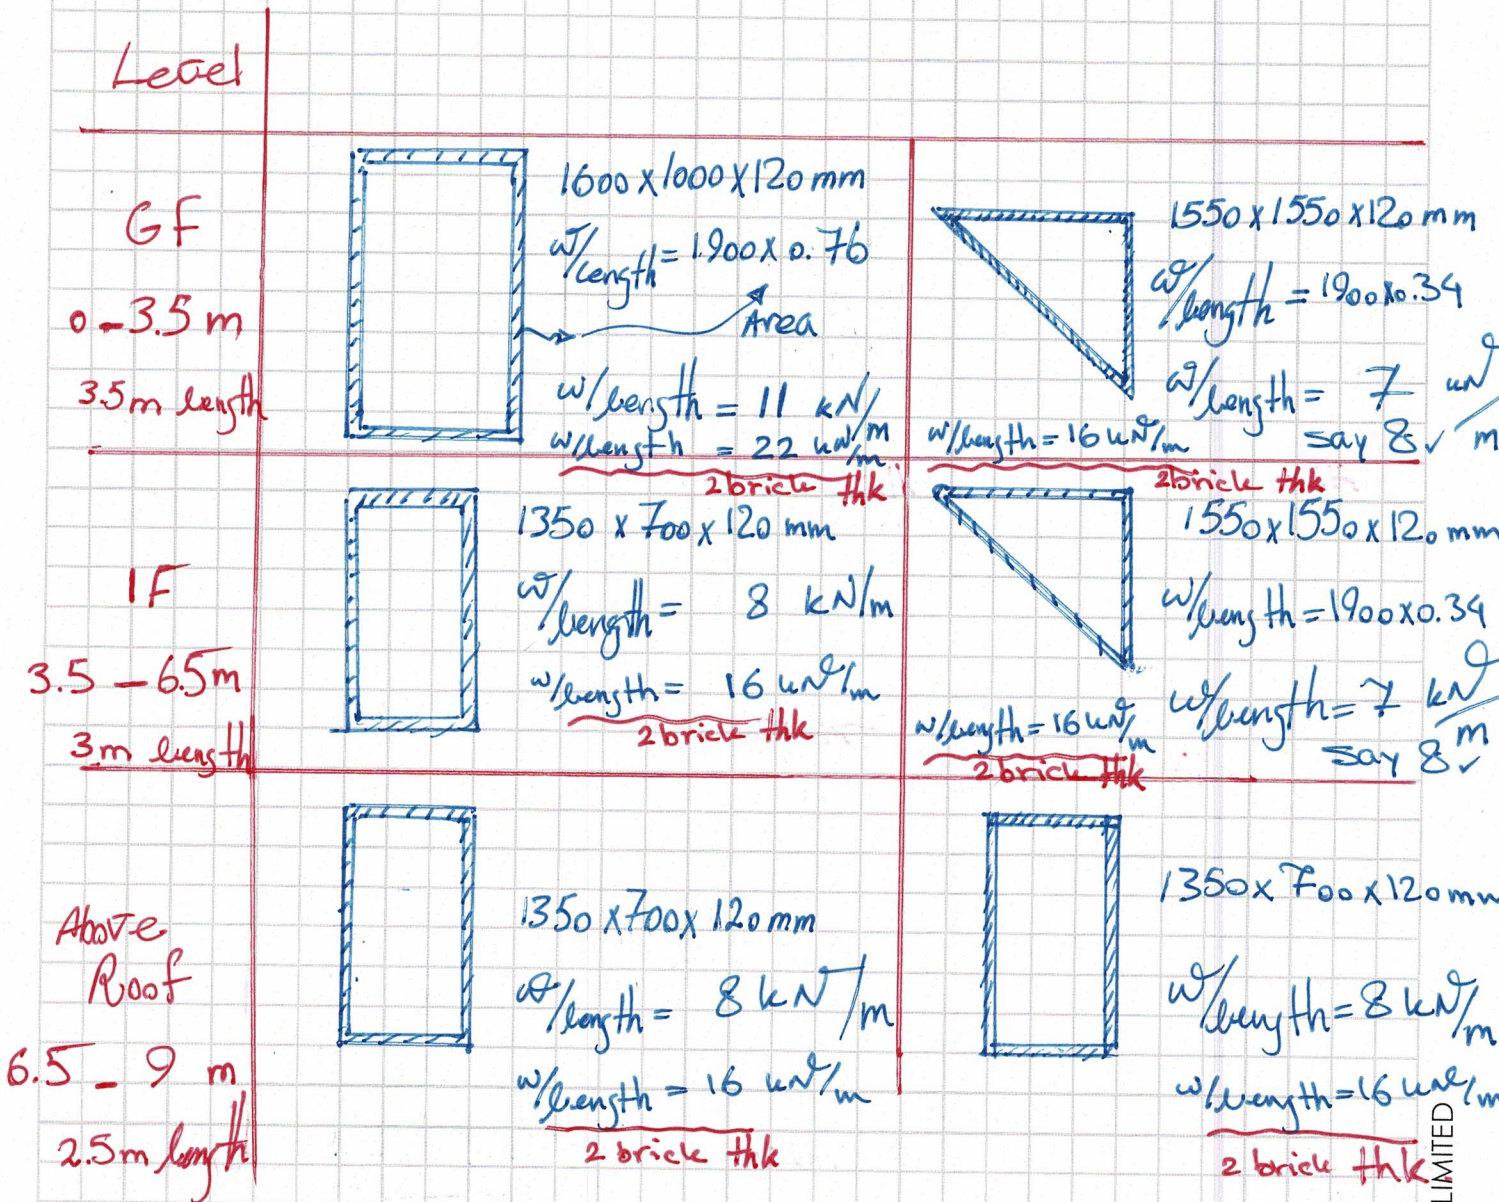 Level
GF
0-3.5 m
3.5m length
1600 x 1000 x 120 mm
W/Length = 1.900 x 0.76
Area
w/length = 11 kN/m
w/length = 22 kN/m
2 brick thk
1550 x 1550 x 120 mm
W/length = 1900x0.34
W/length = 7 kN/m
say 8 ✓
w/length = 16 kN/m
2 brick thk
1F
3.5 - 6.5m
3m length
1350 x 700 x 120 mm
W/length = 8 kN/m
w/length = 16 kN/m
2 brick thk
1550x1550x120 mm
W/length = 1900x0.34
W/length = 7 kN/m
say 8 ✓
w/length = 16 kN/m
2 brick thk
Above
Roof
6.5 - 9 m
2.5m length
1350 x 700 x 120 mm
W/length = 8 kN/m
w/length = 16 kN/m
2 brick thk
1350x 700 x 120 mm
W/length = 8 kN/m
w/length = 16 kN/m
2 brick thk
LIMITED